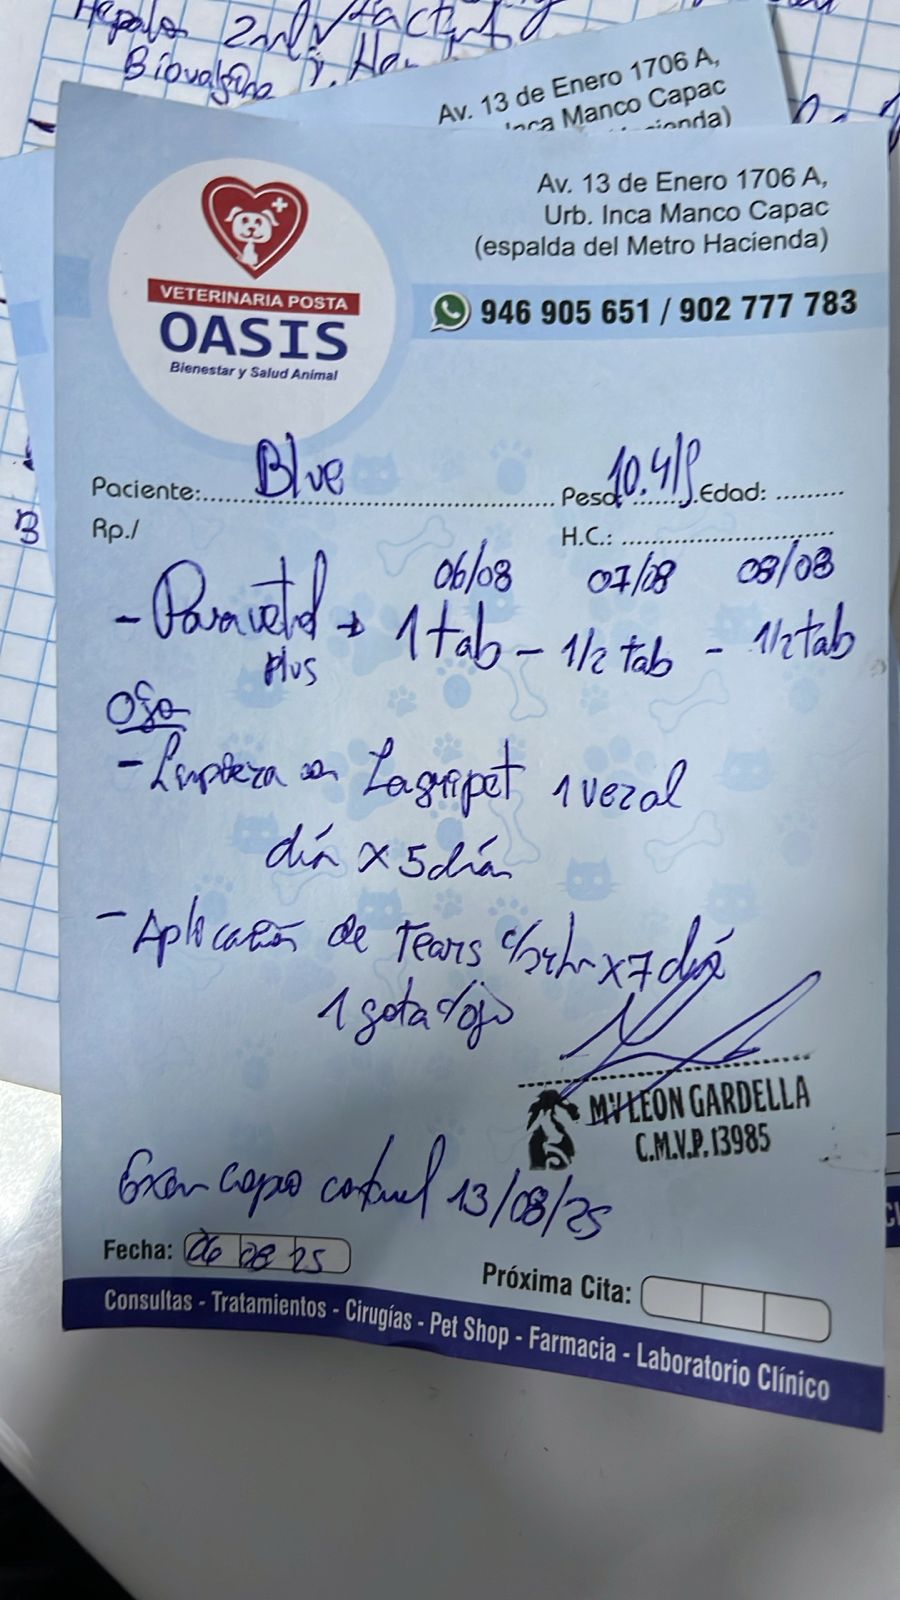 Av. 13 de Enero 1706 A,
Inca Manco Capac
VETERINARIA POSTA
OASIS
Bienestar y Salud Animal
Av. 13 de Enero 1706 A,
Urb. Inca Manco Capac
(espalda del Metro Hacienda)
946 905 651 / 902 777 783
Paciente: Blue Peso: 10.4 Edad:
Rp./ H.C.:
06/08 07/08 08/08
- Paravetol → 1 tab - 1/2 tab - 1/2 tab
plus
Ojo
- Limpieza con Lagripet 1 vez al
día x 5 días
- Aplicación de Tears c/24hr x 7 días
1 gota c/ojo
MV LEON GARDELLA
C.M.V.P. 13985
copro control 13/08/25
Fecha: 06 08 25
Próxima Cita:
Consultas - Tratamientos - Cirugías - Pet Shop - Farmacia - Laboratorio Clínico